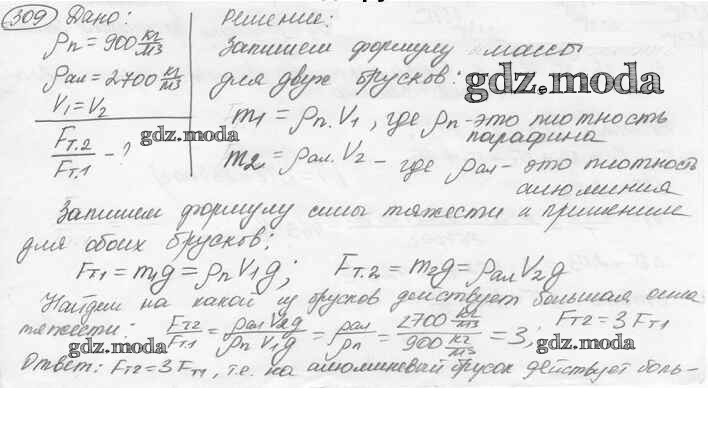 309 Дано:
ρп = 900 кг/м3
ρал = 2700 кг/м3
V1 = V2
Fт.2/Fт.1 - ?
gdz.moda
Решение:
Запишем формулу массы
для двух брусков:
gdz.moda
m1 = ρп·V1, где ρп - это плотность
парафина
m2 = ρал·V2 - где ρал - это плотность
алюминия
Запишем формулу силы тяжести и применим
для обоих брусков:
Fт1 = m1g = ρпV1g; Fт.2 = m2g = ρалV2g
Найдем на какой из брусков действует большая сила
тяжести: Fт2/Fт1 = ρалV2g/ρпV1g = ρал/ρп = 2700 кг/м3 / 900 кг/м3 = 3; Fт2 = 3Fт1
gdz.moda
gdz.moda
Ответ: Fт2 = 3Fт1, т.е. на алюминевый брусок действует боль-